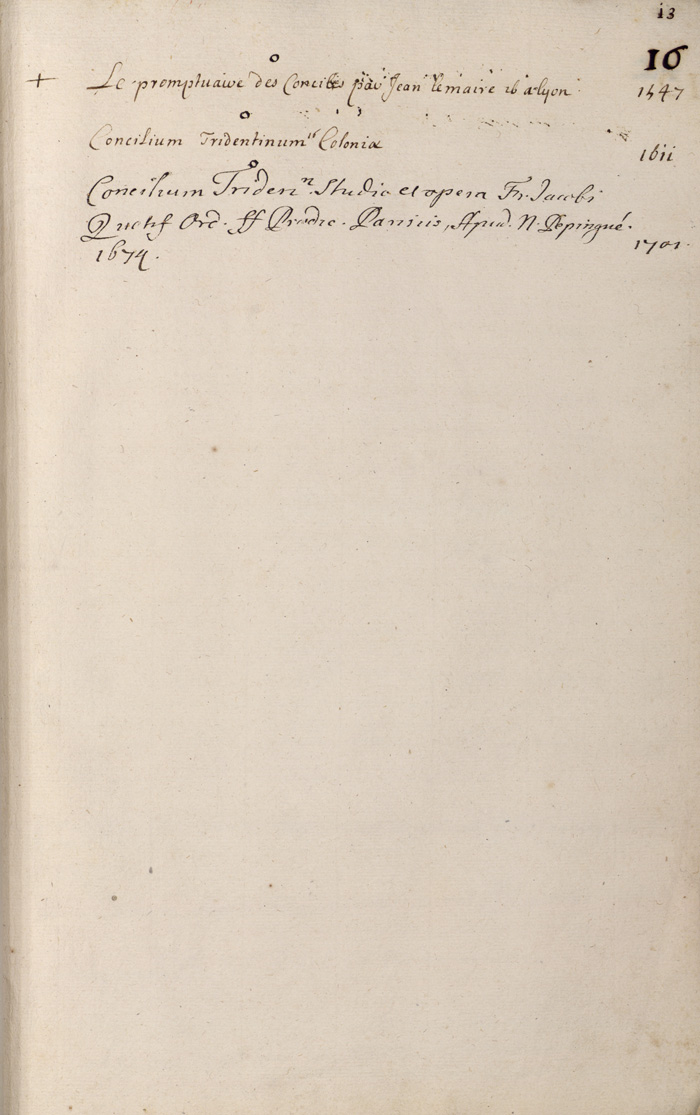 13
16
+ Le promptuaire des Conciles par Jean lemaire 16 a lyon 1547
Concilium Tridentinum Coloniæ 1611
Concilium Triden.ⁿ Studio et opera Fr. Jacobi
Quetif Ord. ff Prædic. Parisiis, Apud. N. Pepingué.
1674. 1701.